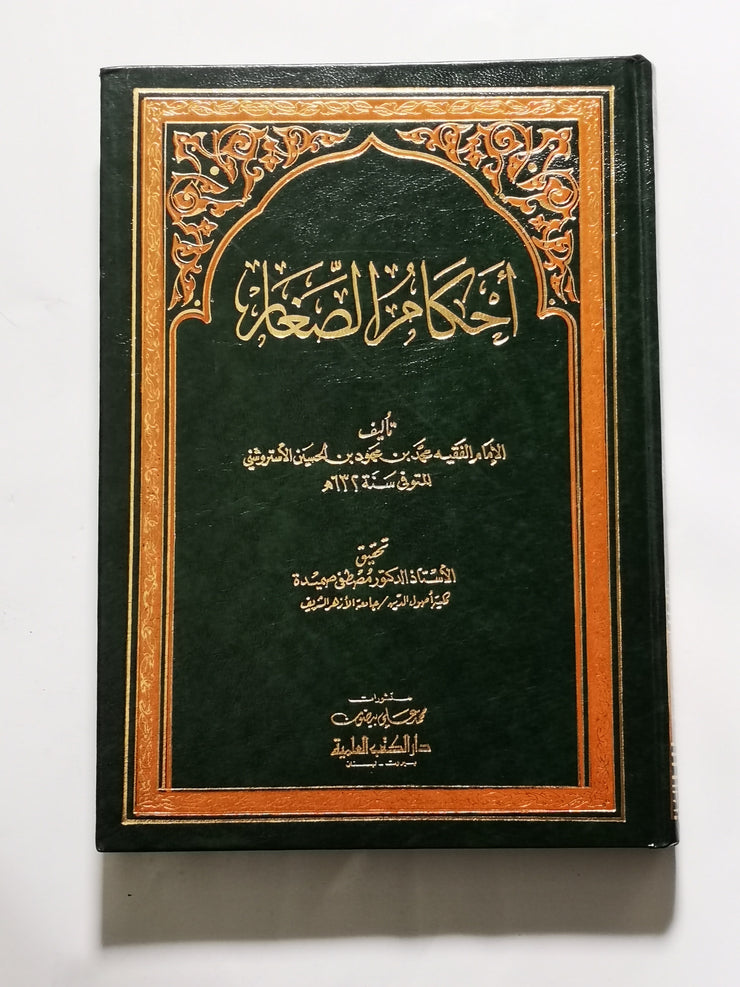 أَحْكَامُ الصِّغَار
تأليف
الإمام الفقيه محمّد بن محمود بن الحسين الأستروشني
المتوفى سَنَة ٦٣٢هـ
تحقيق
الأستاذ الدكتور مُصْطفى صميدة
كلية أصول الدين / جامعة الأزهر الشريف
منشورات
محمد علي بيضون
دار الكتب العلمية
بيروت - لبنان